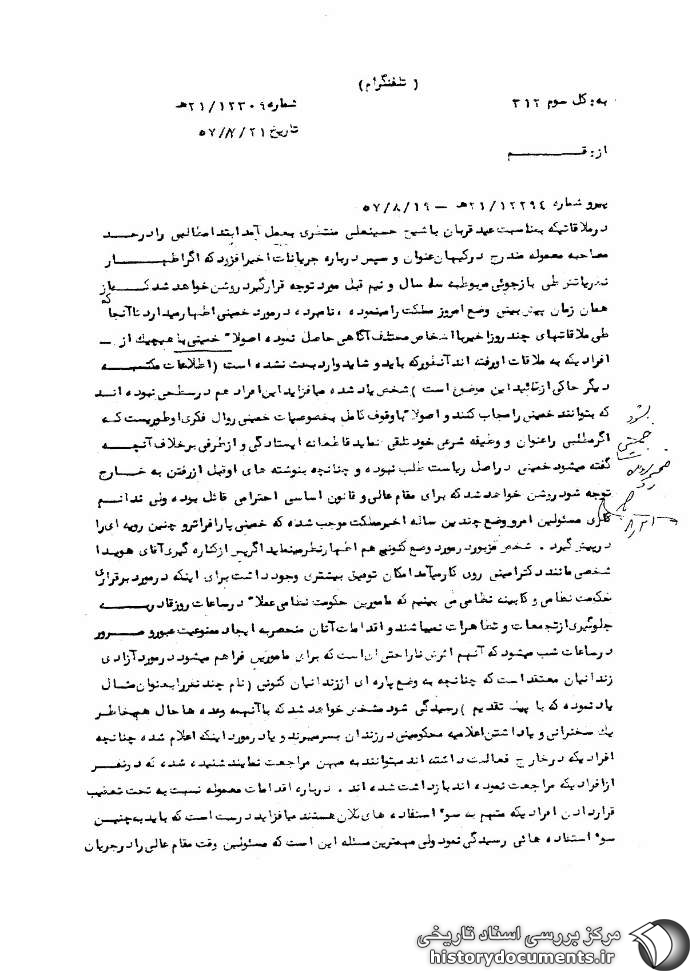 ( تلفنگرام )
به: کل سوم ۳۱۲
شماره ۲۱/۱۲۳۰۹هـ
تاریخ ۵۷/۸/۲۱
از: قـــم
پیرو شماره ۲۱/۱۲۲۹۴هـ – ۵۷/۸/۱۹
در ملاقاتیکه بمناسبت عید قربان با شیخ حسینعلی منتظری بعمل آمد ابتدا مطالبی را در حد
مصاحبه معموله مندرج در کیهان عنوان و سپس درباره جریانات اخیر افزود که اگر اظهار
نظریاتش طی بازجوئی مربوطه سه سال و نیم قبل مورد توجه قرار گیرد روشن خواهد شد که از
همان زمان پیش بینی وضع امروز مملکت را مینموده ، نامبرده در مورد خمینی اظهار میدارد تا آنجا که
طی ملاقاتهای چند روز اخیر با اشخاص مختلف آگاهی حاصل نموده اصولا" خمینی با هیچیک از –
افرادیکه به ملاقات او رفته اند آنطور که باید و شاید وارد بحث نشده است (اطلاعات مکتسبه
دیگر حاکی از تائید این موضوع است ) شخص یاد شده میافزاید این افراد هم در سطحی نبوده اند
که بتوانند خمینی را مجاب کنند و اصولا" با وقوف کامل بخصوصیات خمینی روال فکری او طوریست که
اگر مطلبی را عنوان و وظیفه شرعی خود تلقی نماید قاطعانه ایستادگی و از طرفی برخلاف آنچه
گفته میشود خمینی در اصل ریاست طلب نبوده و چنانچه بنوشته های او قبل از رفتن به خارج
توجه شود روشن خواهد شد که برای مقام عالی و قانون اساسی احترامی قائل بوده ولی ندانم
کاری مسئولین امر و وضع چندین ساله اخیر مملکت موجب شده که خمینی پا را فراتر و چنین رویه ای را
در پیش گیرد . شخص مزبور در مورد وضع کنونی هم اظهار نظر مینماید اگر پس از کناره گیری آقای هویدا
شخصی مانند دکتر امینی روی کار میآمد امکان توفیق بیشتری وجود داشت برای اینکه در مورد برقراری
حکومت نظامی و کابینه نظامی می بینیم که مامورین حکومت نظامی عملا" در ساعات روز قادر به
جلوگیری از تجمعات و تظاهرات نمیباشند و اقدامات آنان منحصر به ایجاد ممنوعیت عبور و مرور
در ساعات شب میشود که آنهم اثرش ناراحتی ای است که برای مامورین فراهم میشود در مورد آزادی
زندانیان معتقد است که چنانچه به وضع پاره ای از زندانیان کنونی (نام چند نفر را بعنوان مثال
یاد نموده که با پیک تقدیم ) رسیدگی شود مشخص خواهد شد که با آنهمه وعده ها حال هم بخاطر
یک سخنرانی و یا داشتن اعلامیه محکومینی در زندان بسر میبرند و یا در مورد اینکه اعلام شده چنانچه
افرادیکه در خارج فعالیت داشته اند میتوانند به میهن مراجعت نمایند شنیده شده که دو نفر
از افرادیکه مراجعت نموده اند بازداشت شده اند . درباره اقدامات معموله نسبت به تحت تعقیب
قرار دادن افرادیکه متهم به سوء استفاده های کلان هستند میافزاید درست است که باید به چنین
سوء استفاده هائی رسیدگی نمود ولی مهمترین مسئله این است که مسئولین وقت مقام عالی را در جریان
مرکز بررسی اسناد تاریخی
historydocuments.ir